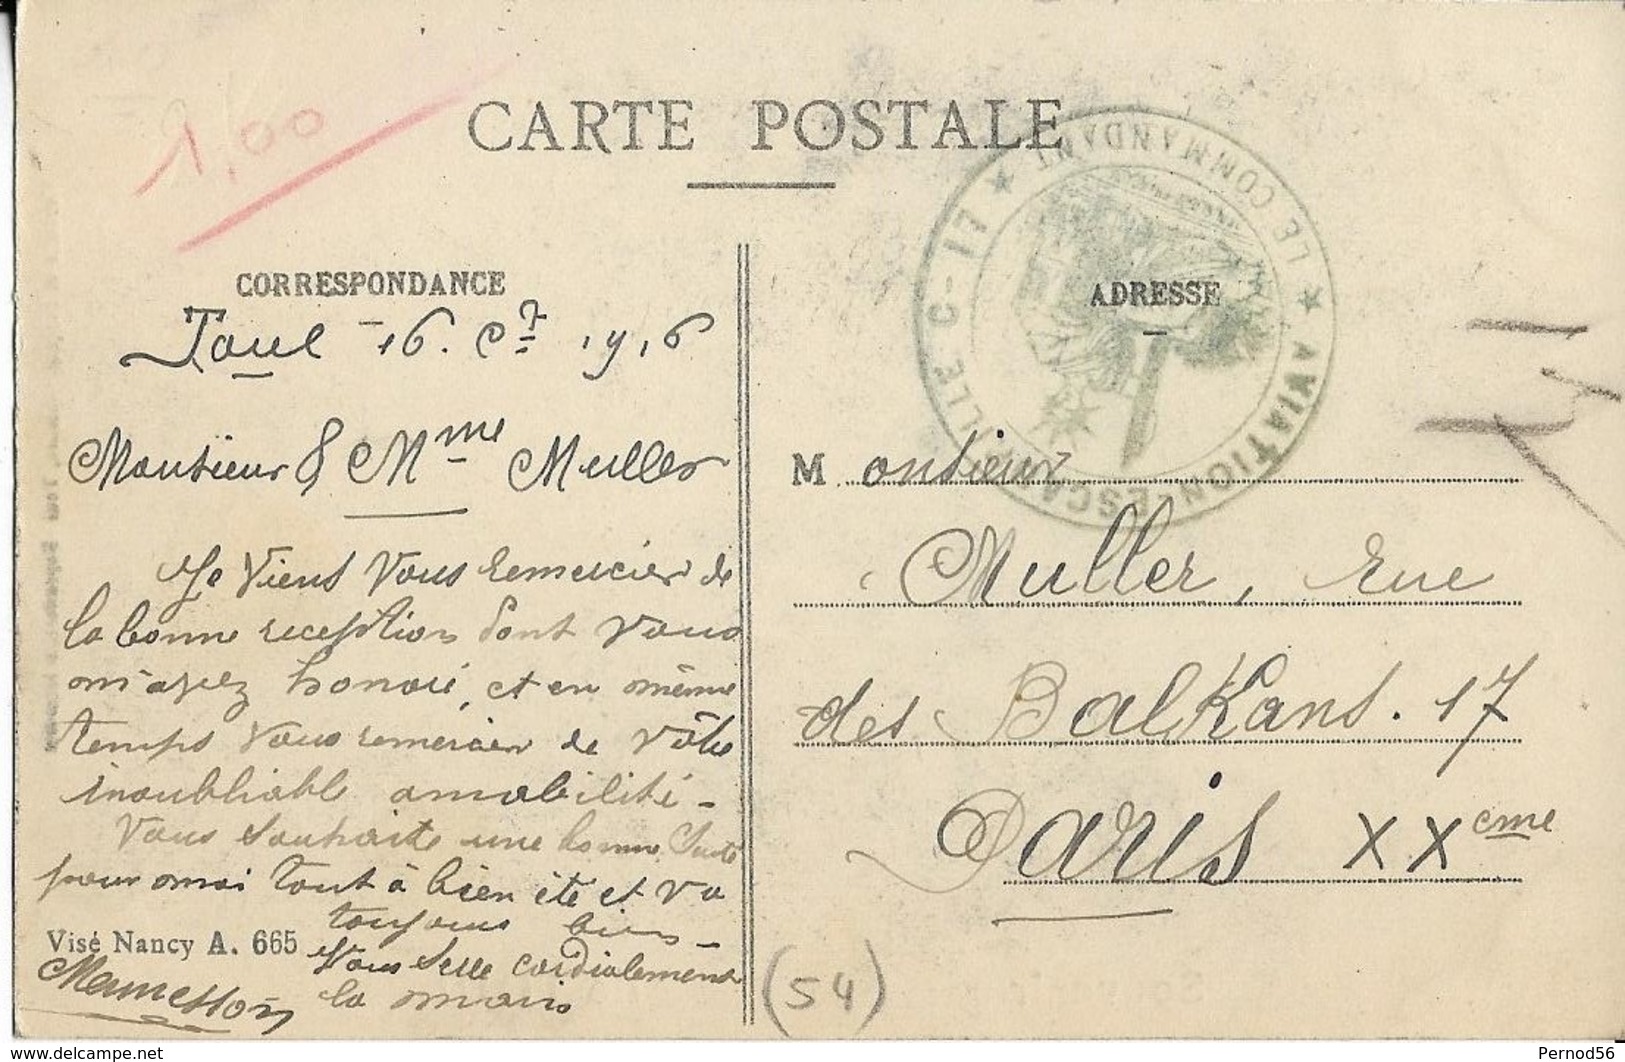 1,00
CARTE POSTALE
★ LE COMMANDANT ★
AVIATION-ESCADRILLE C-17
CORRESPONDANCE
Toul - 16. 1916
Monsieur & Mme Muller
Je viens vous remercier de
la bonne reception dont vous
m'avez honoré, et en même
temps vous remercier de vôtre
inoubliable amabilité -
Vous souhaite une bonne santé
pour moi tout à bien été et va
toujours bien -
Vous serre cordialement
la main
Visé Nancy A. 665
ADRESSE
Monsieur
Muller, rue
des Balkans. 17
Paris XXeme
(54)
https://www.delcampe.net
Pernod56